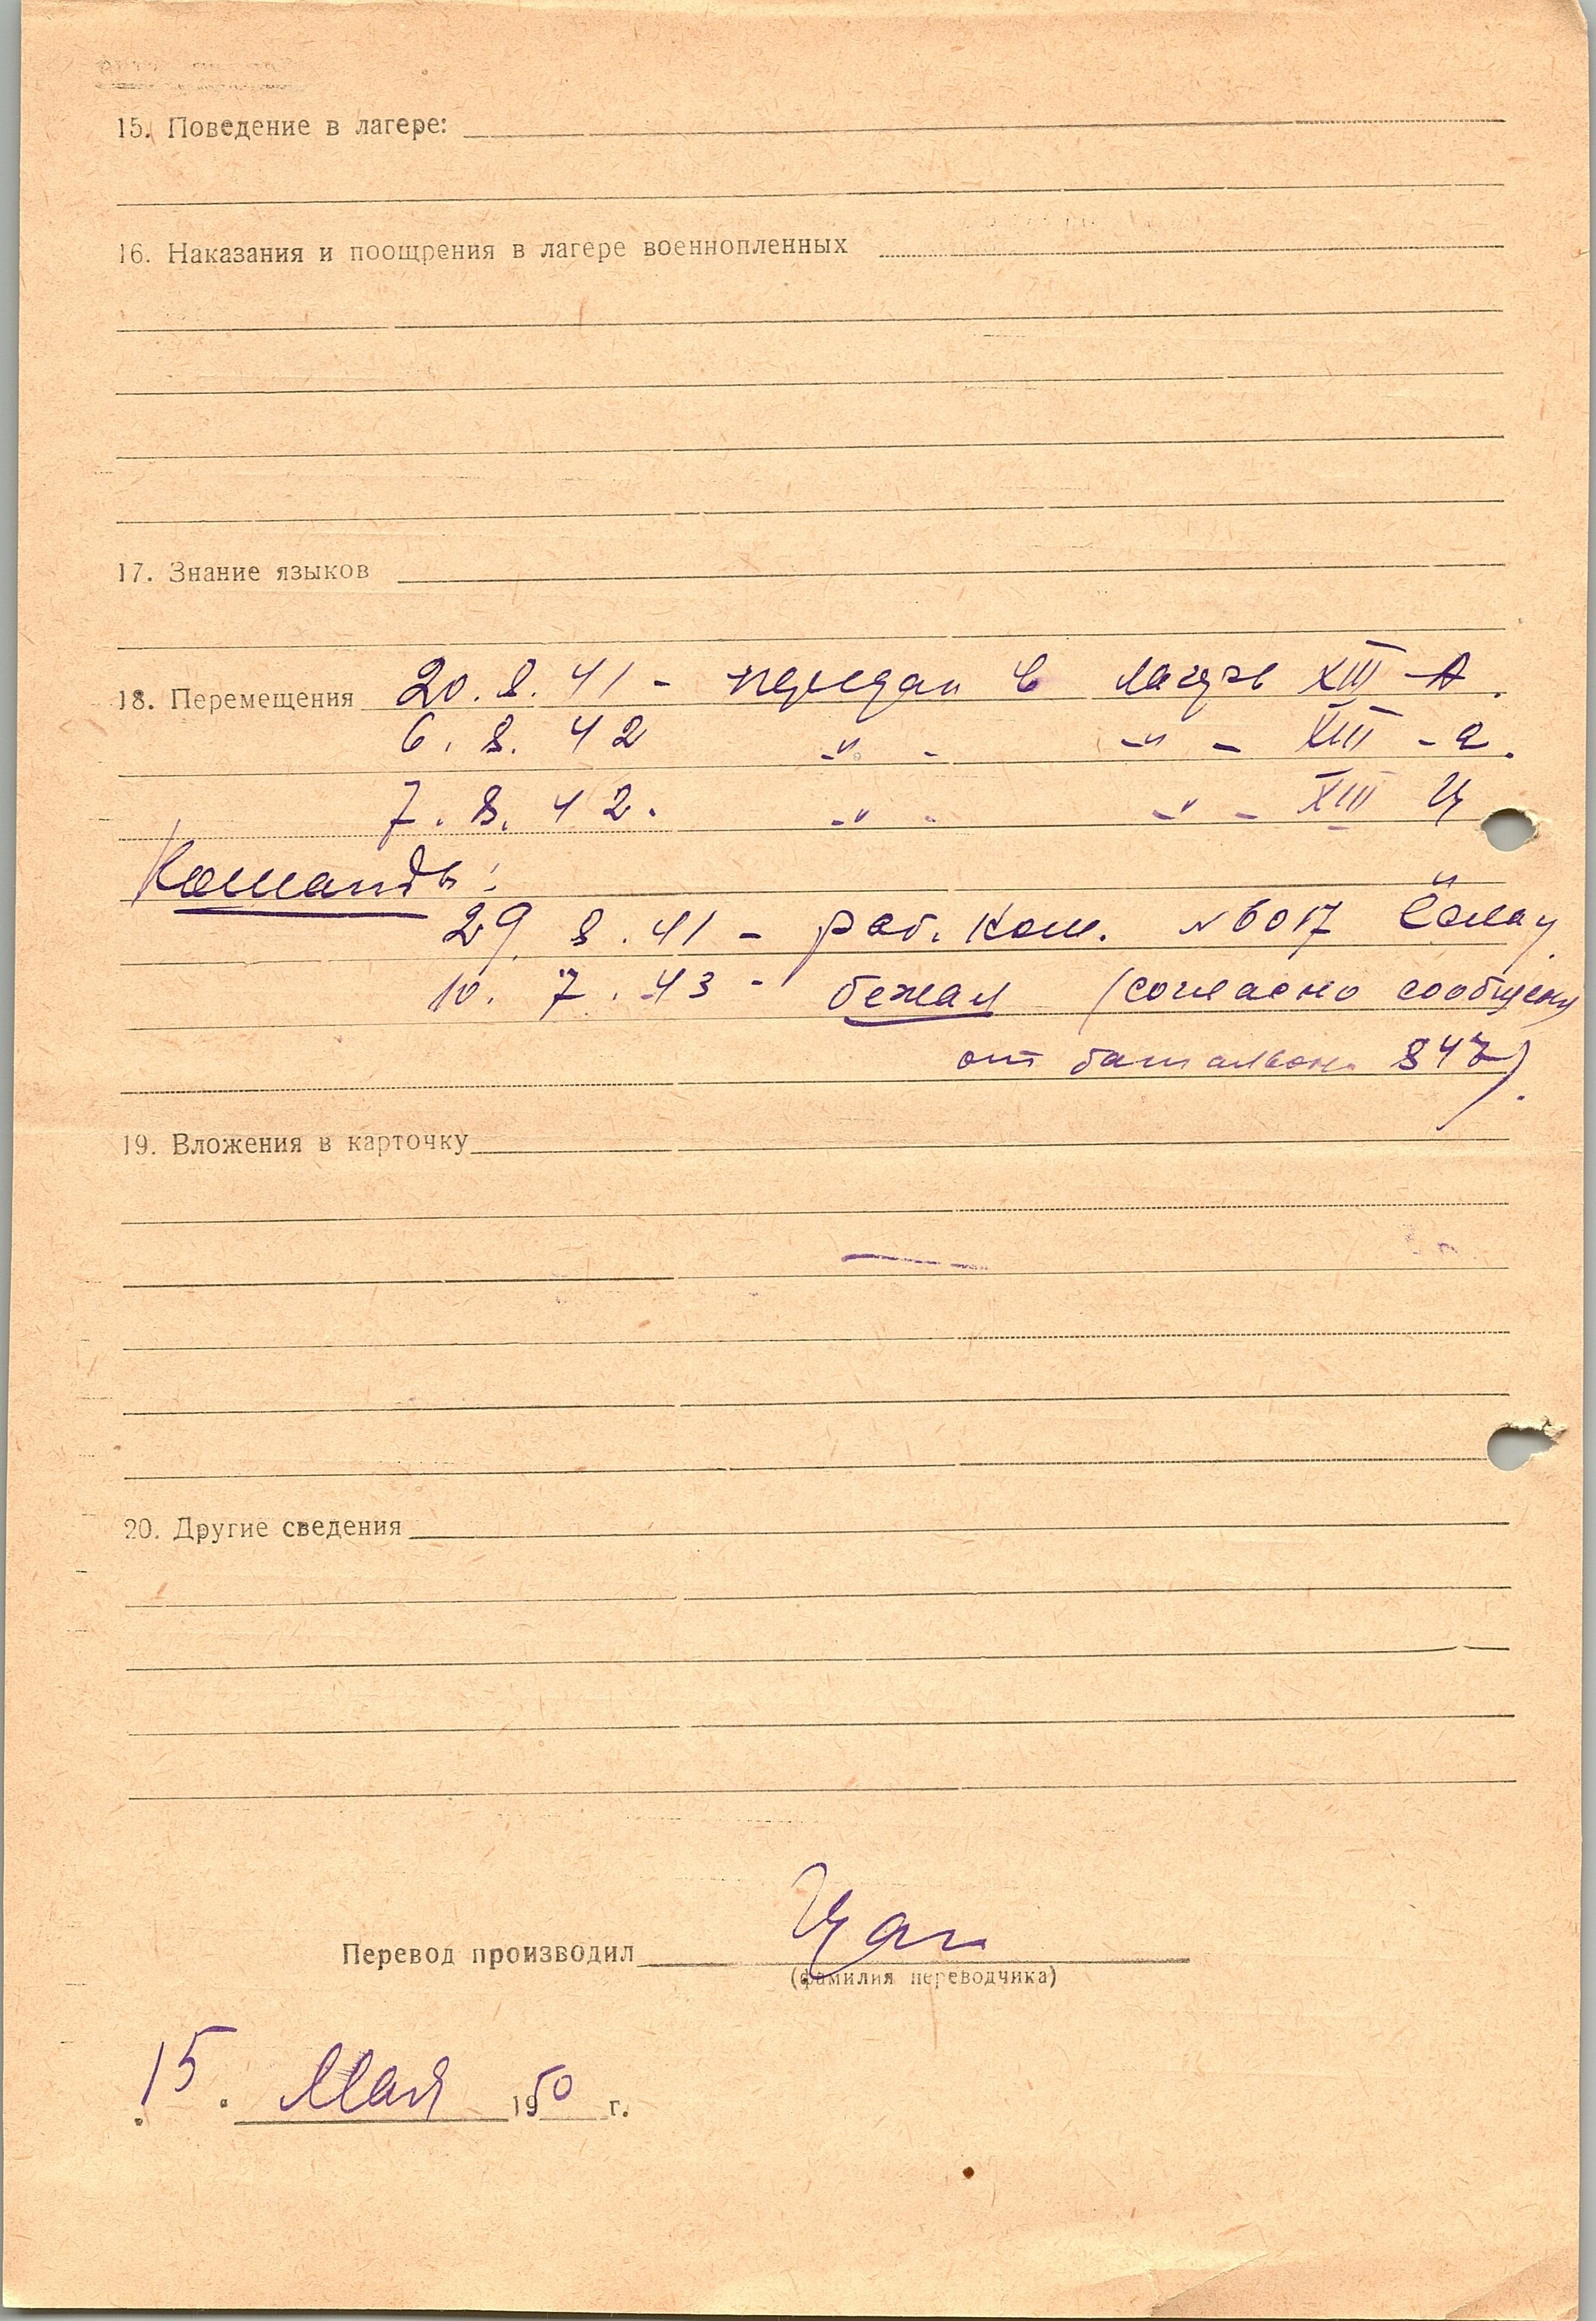 15. Поведение в лагере:
16. Наказания и поощрения в лагере военнопленных
17. Знание языков
18. Перемещения 20. 8. 41 - передан в лагерь XIII - А.
6. 8. 42 -"- -"- XIII - а.
7. 8. 42. -"- -"- XIII Ц
Команды:
29. 8. 41 - раб. ком. №6017
10. 7. 43 - бежал (согласно сообщен
от батальон. 847).
19. Вложения в карточку
20. Другие сведения
Перевод производил
(фамилия переводчика)
15. Мая 1950 г.